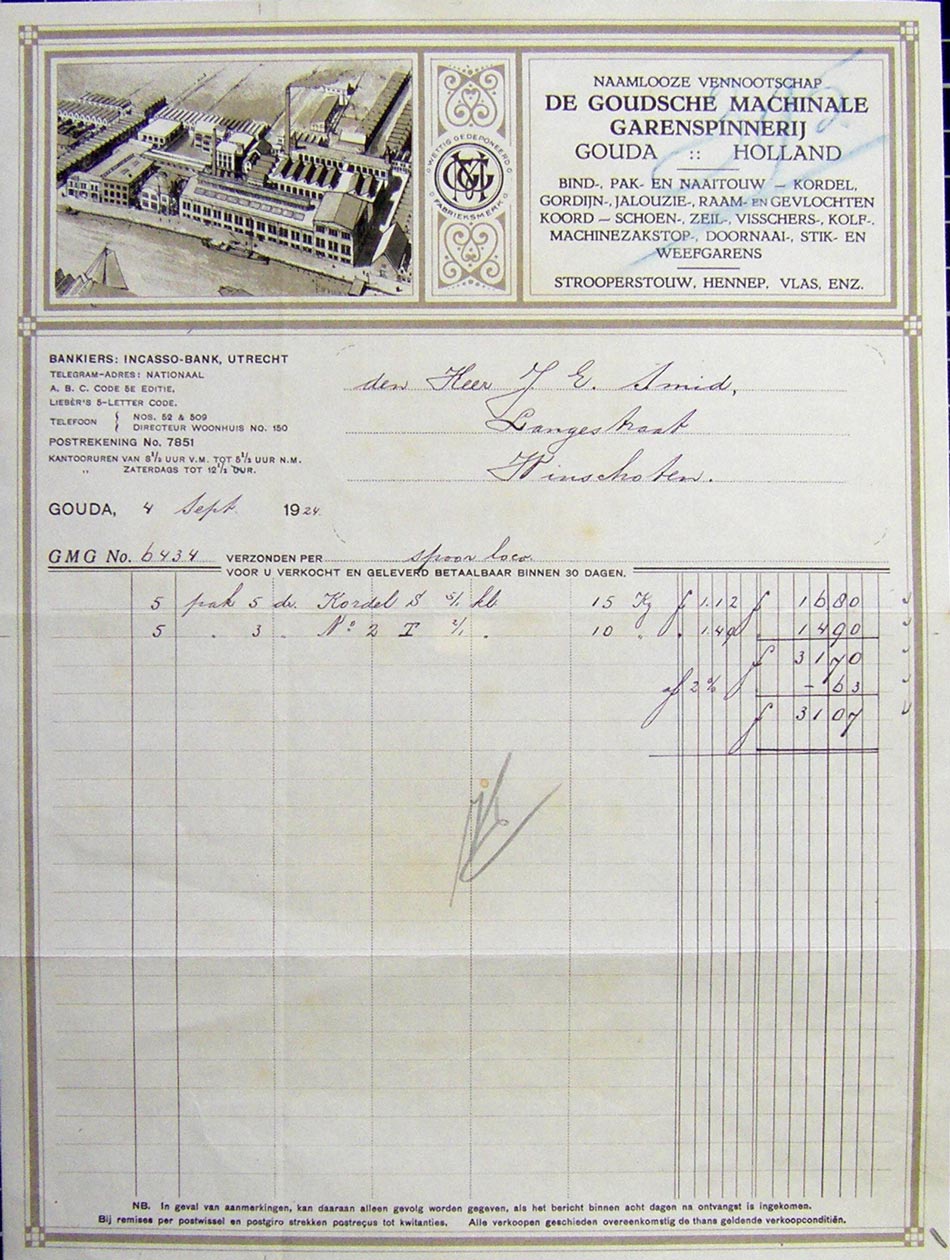 NAAMLOOZE VENNOOTSCHAP
DE GOUDSCHE MACHINALE
GARENSPINNERIJ
GOUDA :: HOLLAND
BIND-, PAK- EN NAAITOUW — KORDEL,
GORDIJN-, JALOUZIE-, RAAM- EN GEVLOCHTEN
KOORD — SCHOEN-, ZEIL-, VISSCHERS-, KOLF-,
MACHINEZAKSTOP-, DOORNAAI-, STIK- EN
WEEFGARENS
STROOPERSTOUW, HENNEP, VLAS, ENZ.
WETTIG GEDEPONEERD
GMG
FABRIEKSMERK
BANKIERS: INCASSO-BANK, UTRECHT
TELEGRAM-ADRES: NATIONAAL
A. B. C. CODE 5E EDITIE.
LIEBER'S 5-LETTER CODE.
TELEFOON { NOS. 52 & 509
DIRECTEUR WOONHUIS NO. 150
POSTREKENING No. 7851
KANTOORUREN VAN 8½ UUR V.M. TOT 5½ UUR N.M.
,, ZATERDAGS TOT 12½ UUR.
den Heer J. E. Smid,
Langestraat
Winschoten.
GOUDA, 4 Sept. 1924.
GMG No. 6434 VERZONDEN PER spoor loco.
VOOR U VERKOCHT EN GELEVERD BETAALBAAR BINNEN 30 DAGEN.
5 pak 5 dr. Kordel S 5/1 kl 15 Kg f 1.12 f 16 80
5 " 3 " No 2 I 2/1 " 10 " " 1.49 " 14 90
f 31 70
af 2% f - 63
f 31 07
NB. In geval van aanmerkingen, kan daaraan alleen gevolg worden gegeven, als het bericht binnen acht dagen na ontvangst is ingekomen.
Bij remises per postwissel en postgiro strekken postreçus tot kwitanties. Alle verkoopen geschieden overeenkomstig de thans geldende verkoopconditiën.